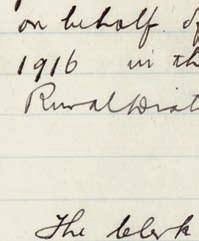 on behalf of
1916 in th
Rural Dist
The Clerk